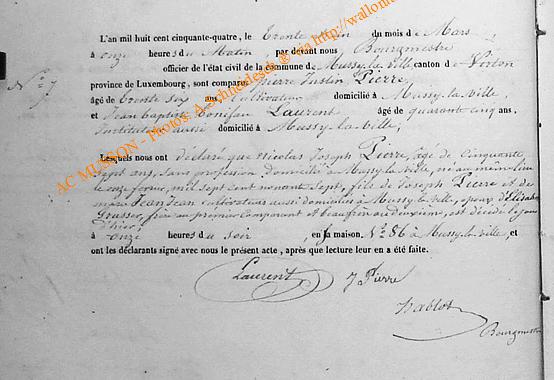 L'an mil huit cent cinquante-quatre, le Trente du mois de Mars
à onze heures du Matin, par devant nous Bourgmestre
officier de l'état civil de la commune de Mussy la ville canton de Virton
N° 7
province de Luxembourg, sont comparus Pierre Justin Pierre,
âgé de trente six ans cultivateur domicilié à Mussy-la-ville,
et Jean baptiste Laurent âgé de quarante cinq ans,
Instituteur aussi domicilié à Mussy-la-ville,
Lesquels nous ont déclaré que Nicolas Joseph Pierre, âgé de Cinquante
sept ans, sans profession Domicilié à Mussy la ville, né au même lieu
le onze mil sept cent nonante sept, fils de Joseph Pierre et de
marie Jean cultivateurs aussi domiciliés à Mussy la ville, époux d'
frère au premier Comparant et beaufrère au deuxième, est décédé le jour
d'hier,
à onze heures du soir, en sa maison N° 86 à Mussy-la-ville, et
ont les déclarants signé avec nous le présent acte, après que lecture leur en a été faite.
Laurent J Pierre
Hablot
Bourgmestre
AC MUSSON - Photos: A.schneidesch @ via http://wallonia